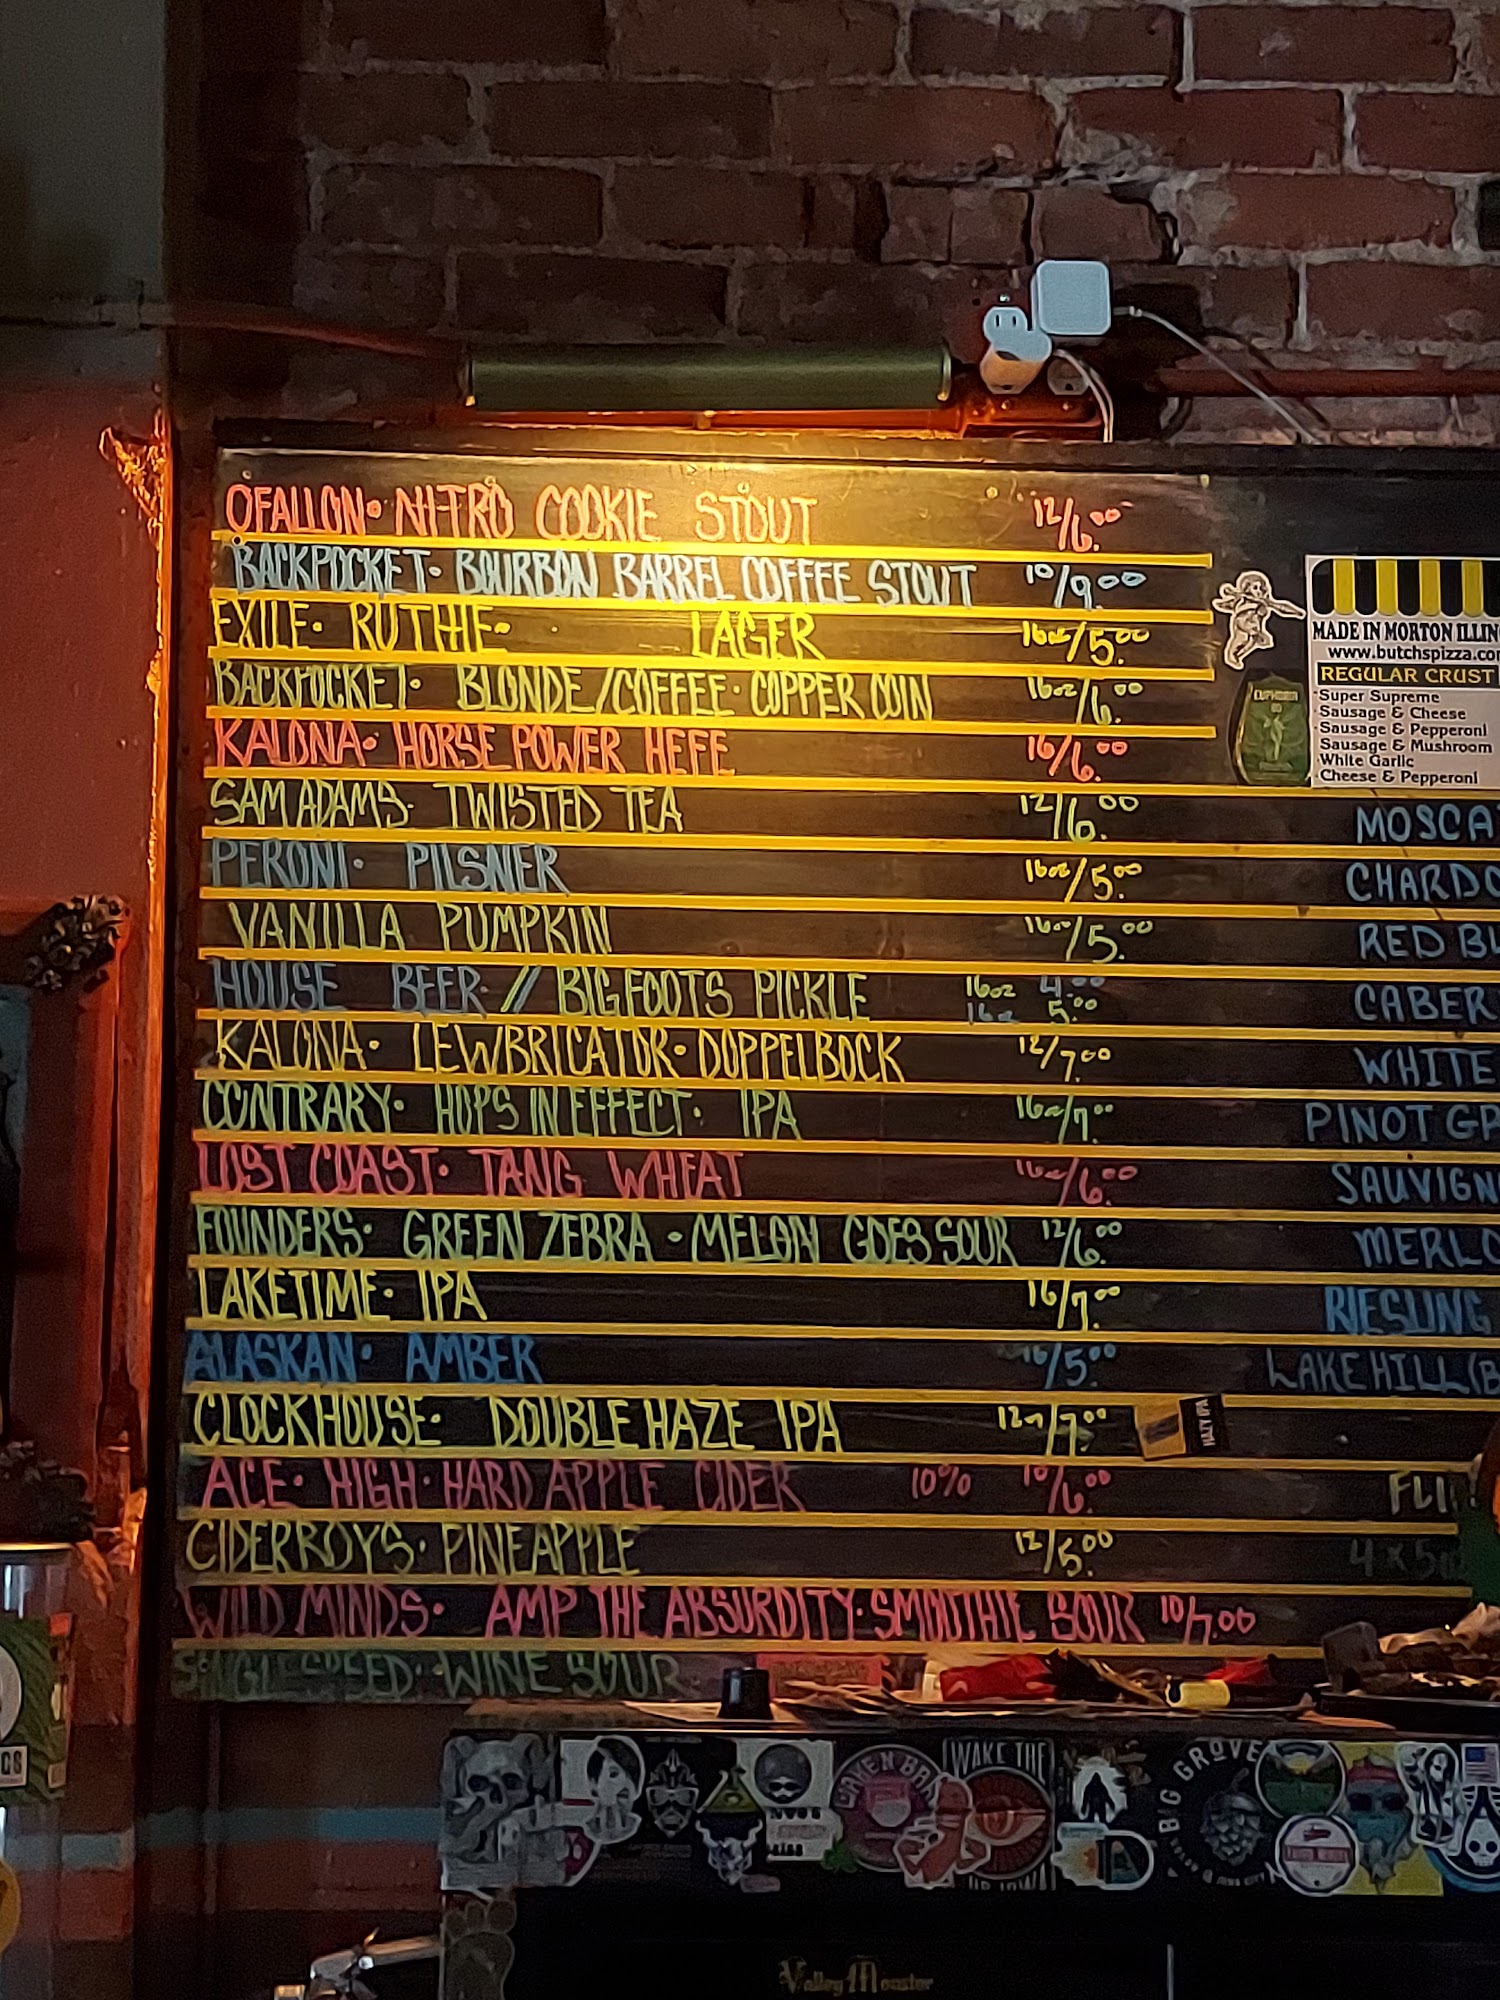 OFALLON• NITRO COOKIE STOUT 12/6.00
BACKPOCKET• BOURBON BARREL COFFEE STOUT 10/9.00
EXILE• RUTHIE• LAGER 16oz/5.00
BACKPOCKET• BLONDE/COFFEE• COPPER COIN 16oz/6.00
KALONA• HORSE POWER HEFE 16/6.00
SAM ADAMS• TWISTED TEA 12/6.00
PERONI• PILSNER 16oz/5.00
VANILLA PUMPKIN 16oz/5.00
HOUSE BEER // BIGFOOTS PICKLE 16oz 4.00
16oz 5.00
KALONA• LEWBRICATOR• DOPPELBOCK 12/7.00
CONTRARY• HOPS IN EFFECT• IPA 16oz/7.00
LOST COAST• TANG WHEAT 16oz/6.00
FOUNDERS• GREEN ZEBRA • MELON GOES SOUR 12/6.00
LAKETIME• IPA 16/7.00
ALASKAN• AMBER 16/5.00
CLOCKHOUSE• DOUBLE HAZE IPA 12oz/7.00
HAZY IPA
ACE• HIGH• HARD APPLE CIDER 10% 10/6.00
CIDERBOYS• PINEAPPLE 12/5.00
WILD MINDS• AMP THE ABSURDITY• SMOOTHIE SOUR 10/7.00
WINE SOUR
EUPHORIA
MADE IN MORTON ILLIN
www.butchspizza.co
REGULAR CRUST
Super Supreme
Sausage & Cheese
Sausage & Pepperoni
Sausage & Mushroom
White Garlic
Cheese & Pepperoni
MOSCA
CHARDO
RED BL
CABER
WHITE
PINOT GR
SAUVIGN
MERLO
RIESLING
LAKE HILL (B
FLI
4 x 5
WAKE THE
UP IOWA
BIG GROVE
Valley Monster